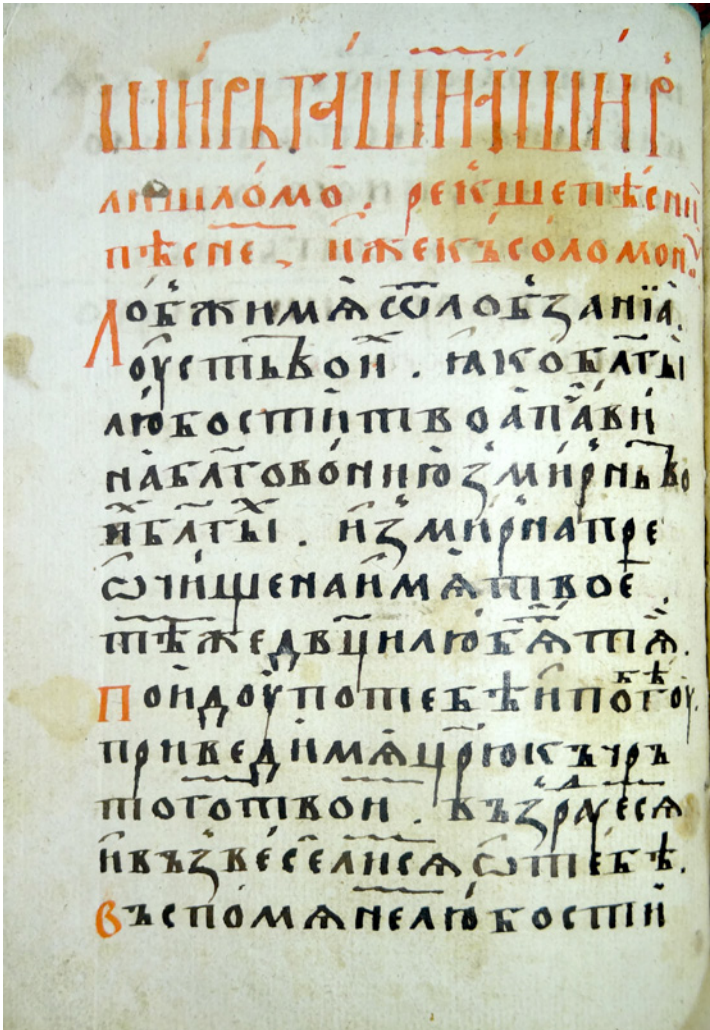 ши́рьга́ши̑ма́шиі҆р
лишло́мо҃. ре́кше пѣсни
пѣсне, и҆же къ соломонꙋ
Лобжи мѧ ѿ лобзанїа.
ѹстъ твои҆х. ꙗко бл҃гы
лю́бости твоа̀ па́ви
на̀ бл҃говонию змирнъ тво
и҆х бл҃гы. и҆ змирна пре
ѡчищена и҆мѧ твое.
тѣмже дв҃ци любѧт тѧ.
пои́дꙋ по тебѣ и҆ побѣгꙋ.
приведи мѧ цр҃ю къ чрь
тогъ твои. възрадꙋесѧ
и҆ възвеселимсѧ ѡ тебѣ.
въспомѧнем любости